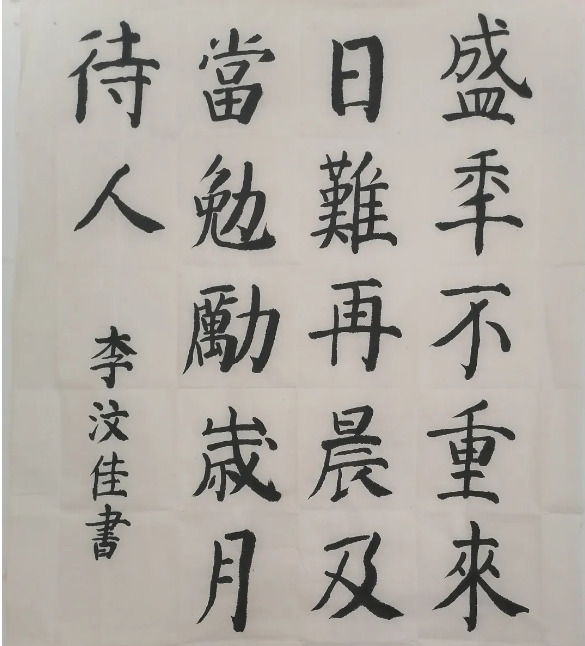 盛年不重來
日難再晨及
當勉勵歲月
待人
李汶佳書